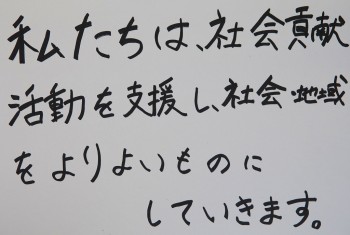 私たちは、社会貢献
活動を支援し、社会・地域
をよりよいものに
していきます。